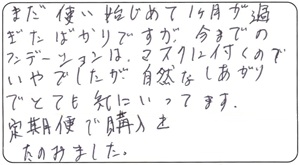 まだ使い始めて1ヶ月が過
ぎたばかりですが今までの
ファンデーションは、マスクに付くので
いやでしたが自然なしあがり
でとても気にいってます。
定期便で購入を
たのみました。